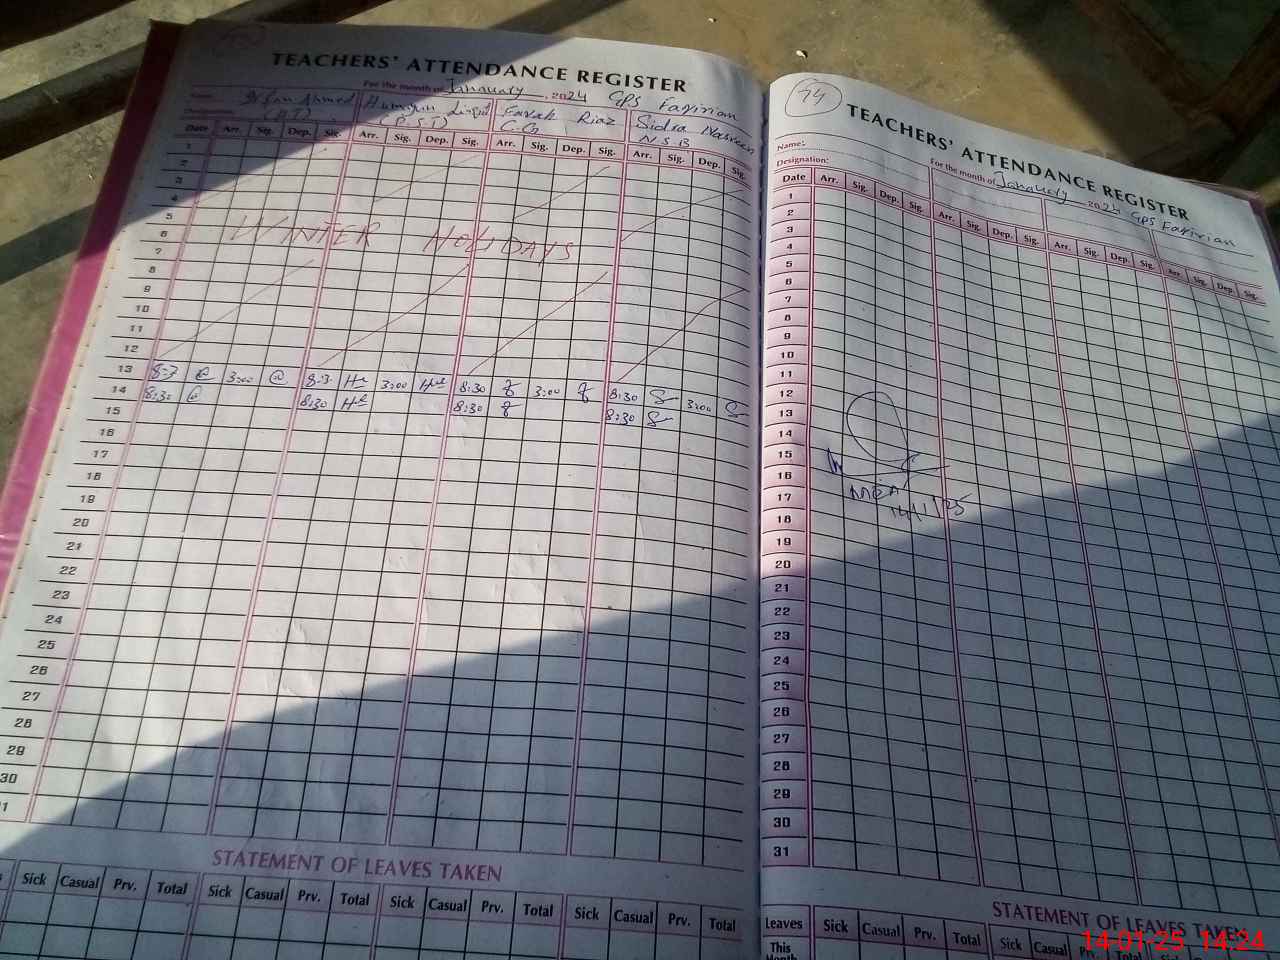 TEACHERS' ATTENDANCE REGISTER
For the month of Janauary, 2024 GPS Faqirian
Irfan Ahmed Humayun Farah Riaz Sidra Nasreen
(P.S.T) C.G N.S.B
Date Arr. Sig. Dep. Sig. Arr. Sig. Dep. Sig. Arr. Sig. Dep. Sig. Arr. Sig. Dep. Sig.
1
2
3
4
5
WINTER HOLIDAYS
6
7
8
9
10
11
12
13 3:00 3:00 8:30 3:00 8:30 3:00
14 8:30 8:30 8:30 8:30
15
16
17
18
19
20
21
22
23
24
25
26
27
28
29
30
STATEMENT OF LEAVES TAKEN
Sick Casual Prv. Total Sick Casual Prv. Total Sick Casual Prv. Total Sick Casual Prv. Total
44
TEACHERS' ATTENDANCE REGISTER
For the month of Janauary 2024 GPS Faqirian
Name:
Designation:
Date Arr. Sig. Dep. Sig. Arr. Sig. Dep. Sig. Arr. Sig. Dep. Sig. Arr. Sig. Dep. Sig.
1
2
3
4
5
6
7
8
9
10
11
12
13
14
15
16
MEA
17
14/1/25
18
19
20
21
22
23
24
25
26
27
28
29
30
31
STATEMENT OF LEAVES TAKEN
Leaves Sick Casual Prv. Total Sick Casual Prv.
This
Month
14-01-25 14:24